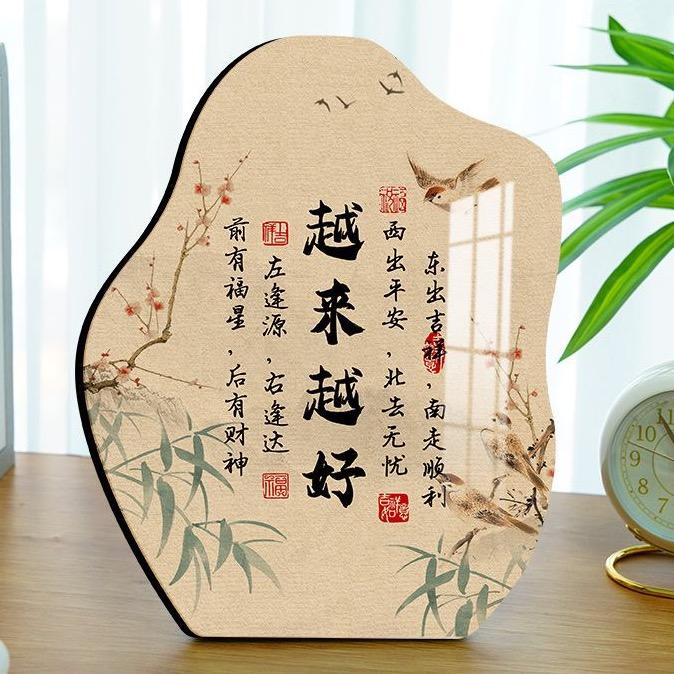 东出吉祥,南走顺利
西出平安,北去无忧
越来越好
左逢源,右逢达
前有福星,后有财神
11
10
9
8
7